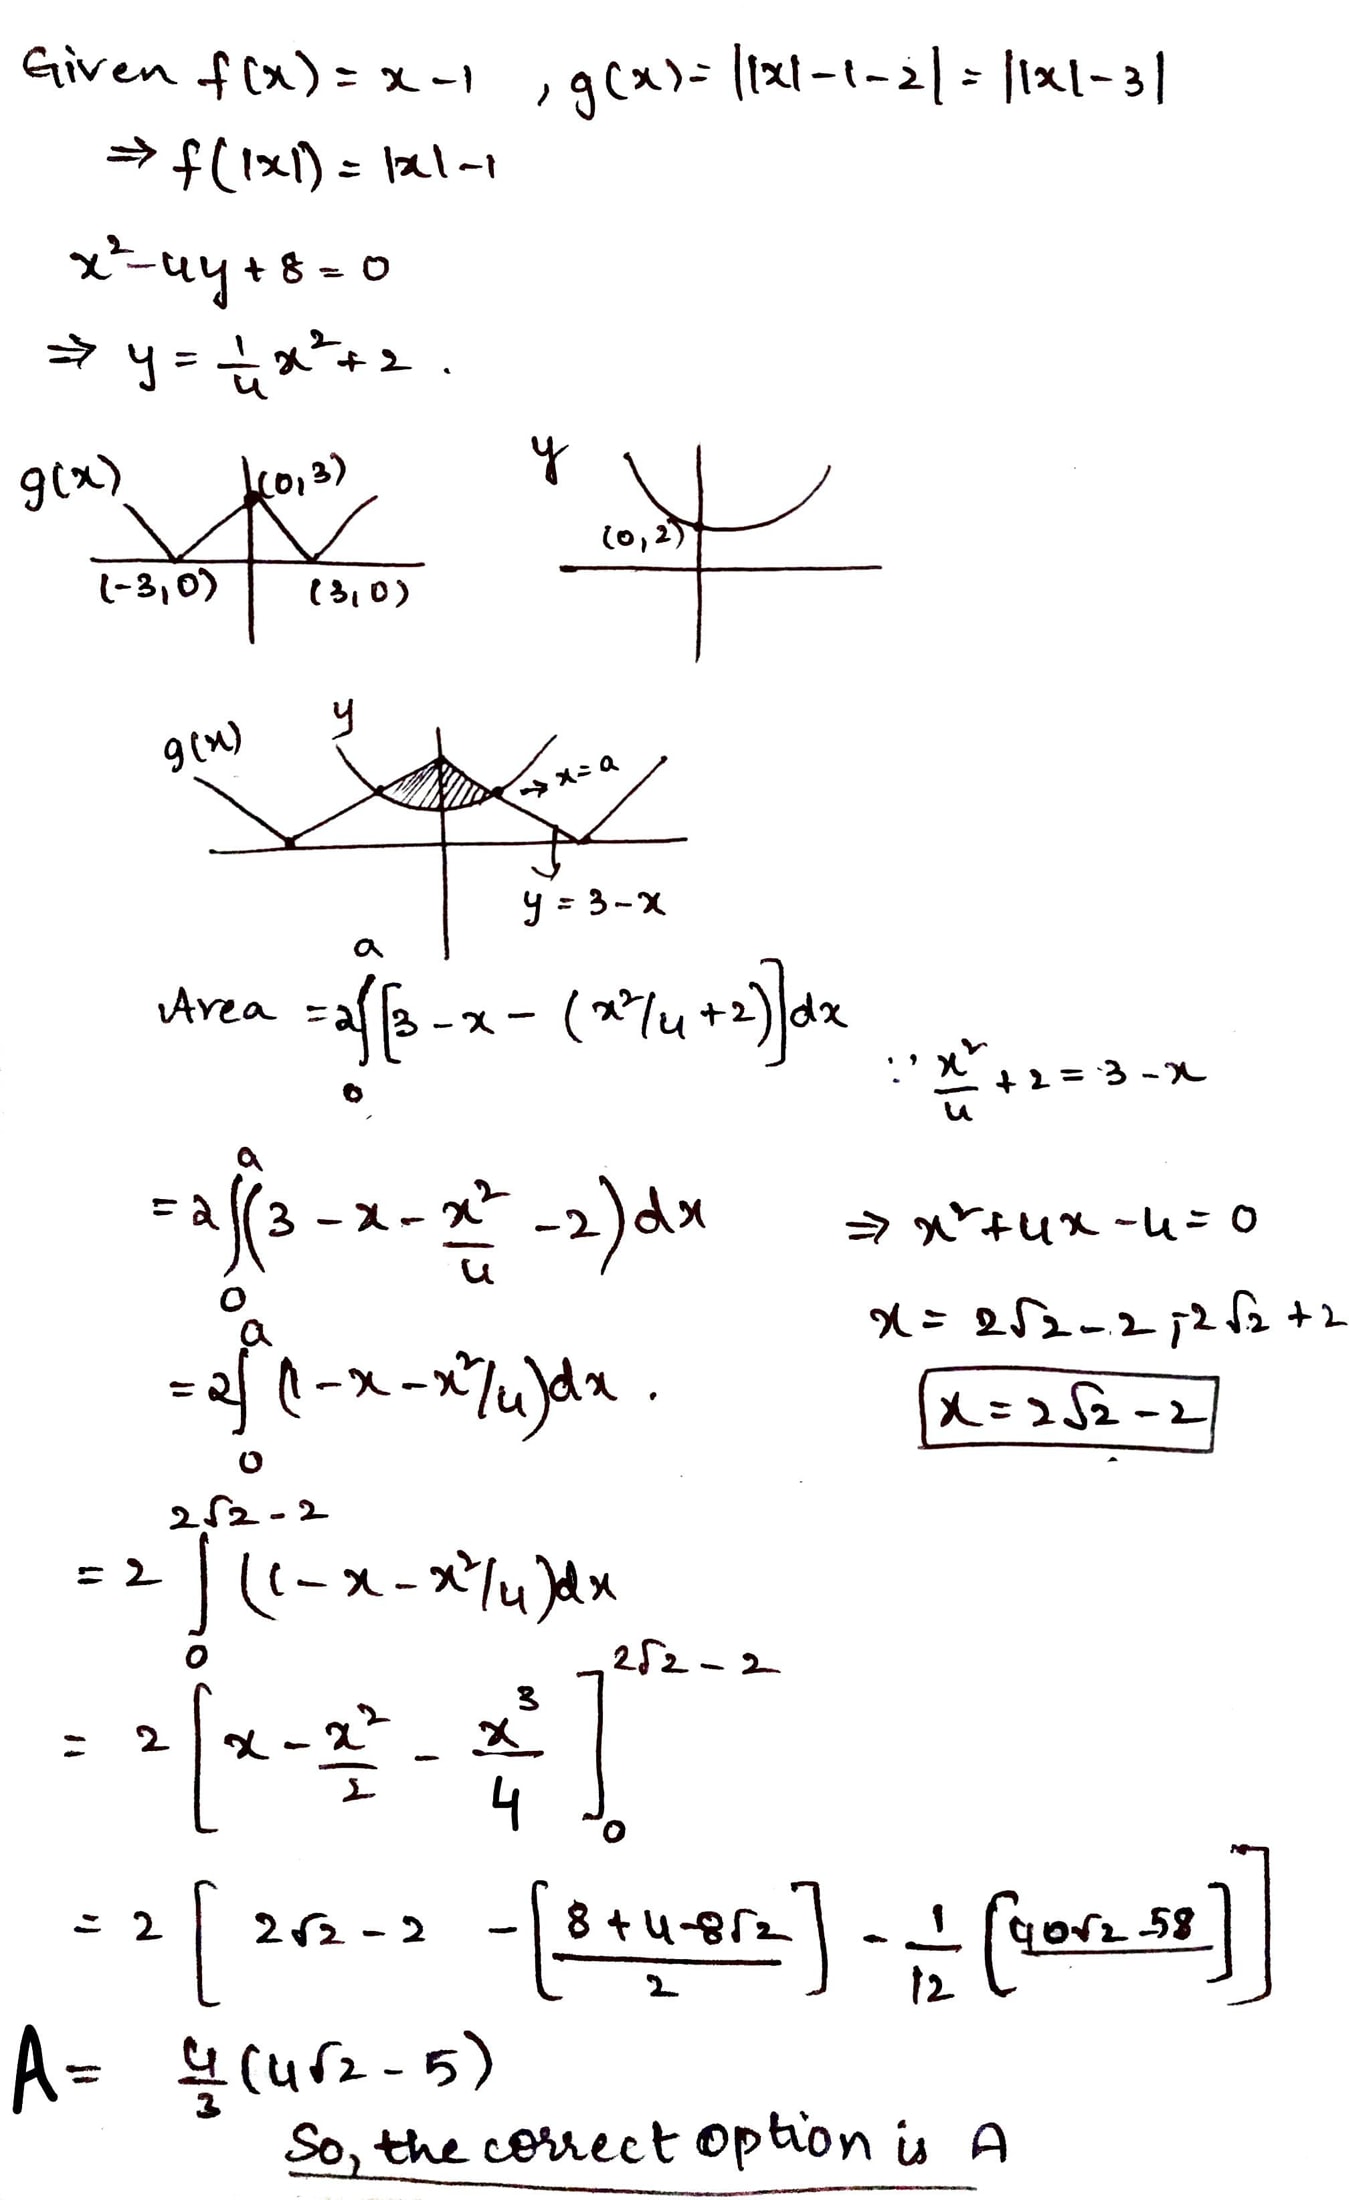 Given f(x) = x-1 , g(x) = ||x|-1-2| = ||x|-3|
⇒ f(|x|) = |x|-1
x²-4y+8=0
⇒ y = 1/4 x²+2 .
g(x) (0,3) (-3,0) (3,0)
y (0,2)
g(x) y → x=a
y = 3-x
Area = 2∫₀ᵃ[3-x-(x²/4+2)]dx
∵ x²/4 + 2 = 3-x
= 2∫₀ᵃ(3-x-x²/4-2)dx
⇒ x²+4x-4=0
x = 2√2-2 ; -2√2+2
= 2∫₀ᵃ(1-x-x²/4)dx .
x = 2√2-2
= 2∫₀^(2√2-2) (1-x-x²/4)dx
= 2[x - x²/2 - x³/4]₀^(2√2-2)
= 2[2√2-2 - [(8+4-8√2)/2] - 1/12 [40√2-58]]
A = 4/3 (4√2-5)
So, the correct option is A